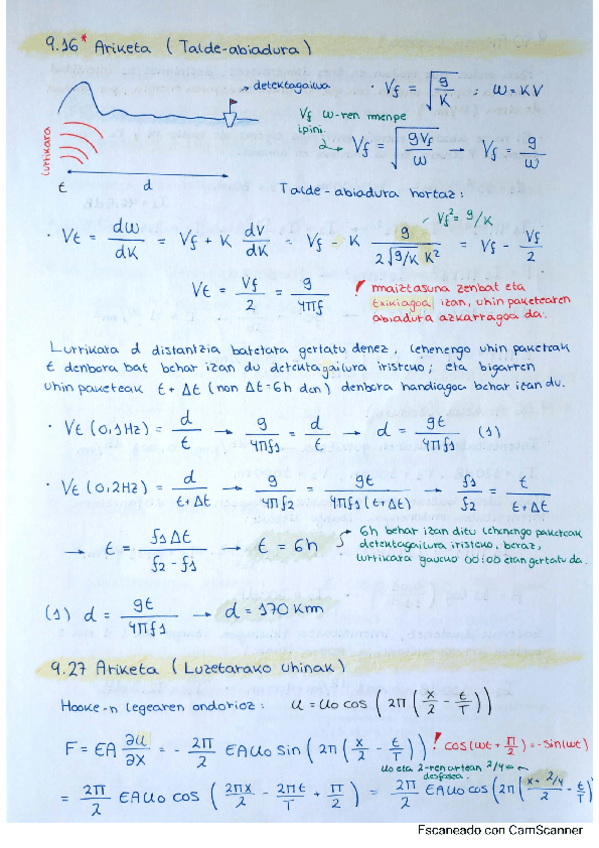 9.16* Ariketa (Talde-abiadura)
detektagailua
· Vf = √(g/K) ; ω = KV
Vf ω-ren menpe
ipini.
↳ Vf = √(gVf/ω) → Vf = g/ω
Lurrikara
t d
Talde-abiadura hortaz:
Vf² = g/K
· Vt = dω/dK = Vf + K dV/dK = Vf - K g/(2√(g/K) K²) = Vf - Vf/2
Vt = Vf/2 = g/4πf
! maiztasuna zenbat eta
txikiagoa izan, uhin paketearen
abiadura azkarragoa da.
Lurrikara d distantzia batetara gertatu denez, lehenengo uhin paketeak
t denbora bat behar izan du detektagailura iristeko; eta bigarren
uhin paketeak t + Δt (non Δt=6h den) denbora handiagoa behar izan du.
· Vt (0,1Hz) = d/t → g/4πf1 = d/t → d = gt/4πf1 (1)
· Vt (0,2Hz) = d/(t+Δt) → g/4πf2 = gt/(4πf1(t+Δt)) → f1/f2 = t/(t+Δt)
→ t = f1Δt/(f2-f1) → t = 6h
6h behar izan ditu lehenengo paketeak
detektagailura iristeko, beraz,
lurrikara gaueko 00:00etan gertatu da.
(1) d = gt/4πf1 → d = 170 km
9.27 Ariketa (Luzetarako uhinak)
Hooke-n legearen ondorioz: u = u0 cos (2π(x/λ - t/T))
F = EA ∂u/∂x = - 2π/λ EAu0 sin (2π(x/λ - t/T)) ! cos(ωt + π/2) = -sin(ωt)
u0 eta λ-ren artean λ/4-ko
desfasea.
= 2π/λ EAu0 cos (2πx/λ - 2πt/T + π/2) = 2π/λ EAu0 cos (2π(x+λ/4/λ - t/T)
Escaneado con CamScanner